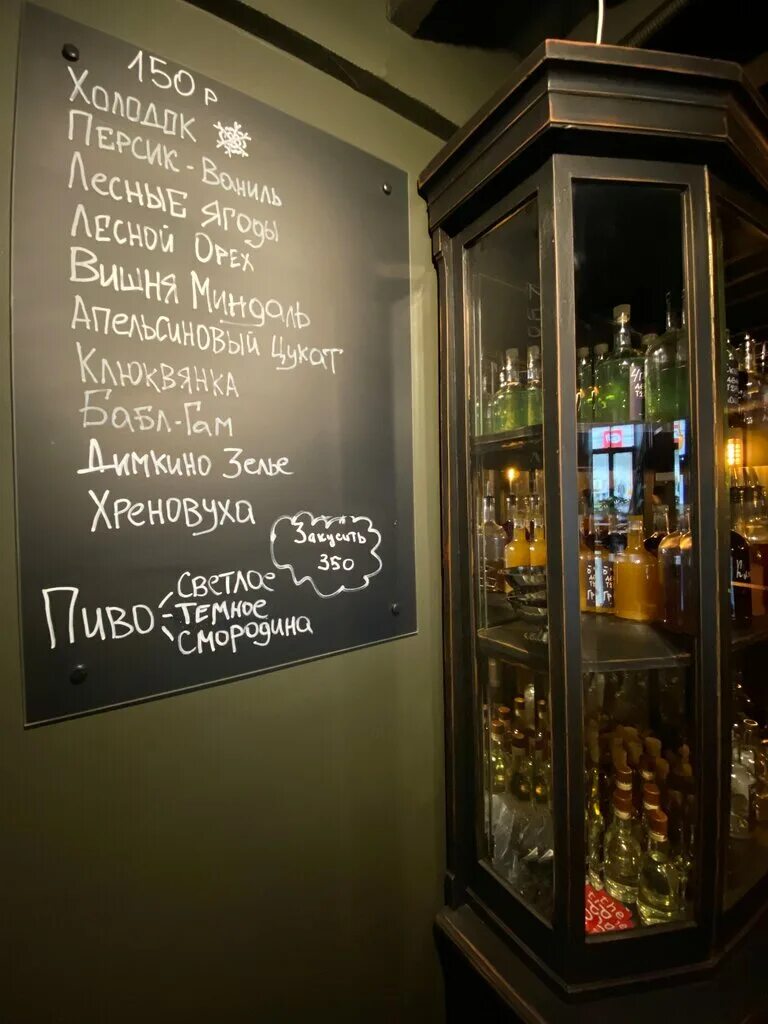 150 р
Холодок
Персик - Ваниль
Лесные Ягоды
Лесной Орех
Вишня Миндаль
Апельсиновый Цукат
Клюквянка
Бабл-Гам
Димкино Зелье
Хреновуха
Закусить
350
Пиво
Светлое
Темное
Смородина